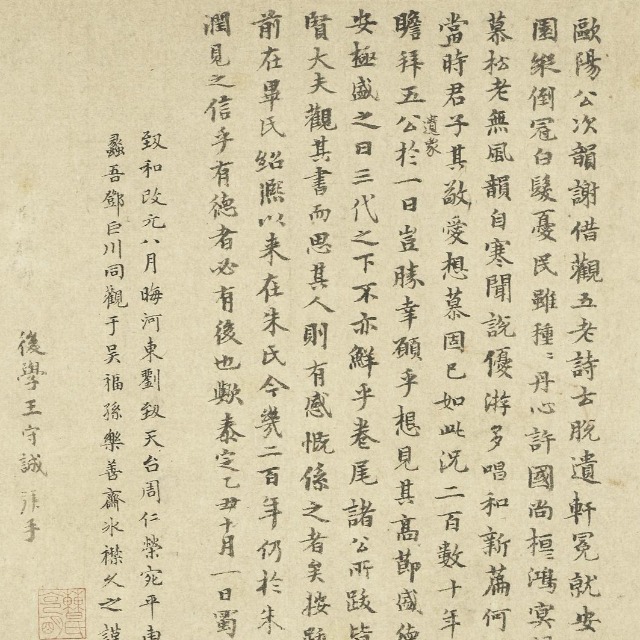 歐陽公次韻謝借觀五老詩士脫遺軒冕就安
園綺倒冠白髮憂民雖種〻丹心許國尚桓鴻冥
慕松老無風韻自寒聞說優游多唱和新篇何
當時君子其敬愛想慕固已如此況二百數十年
瞻拜五公遺象於一日豈勝幸願乎想見其高節盛德
安極盛之日三代之下不亦鮮乎卷尾諸公所跋皆
賢大夫觀其書而思其人則有感慨係之者矣按跋
前在畢氏紹熙以来在朱氏今幾二百年仍於朱
潤見之信乎有德者必有後也歟泰定乙丑十月一日蜀
致和改元八月晦河東劉致天台周仁榮宛平
蠡吾鄧巨川同觀于吳福孫樂善齋冰襟久之謹
後學王守誠拜手